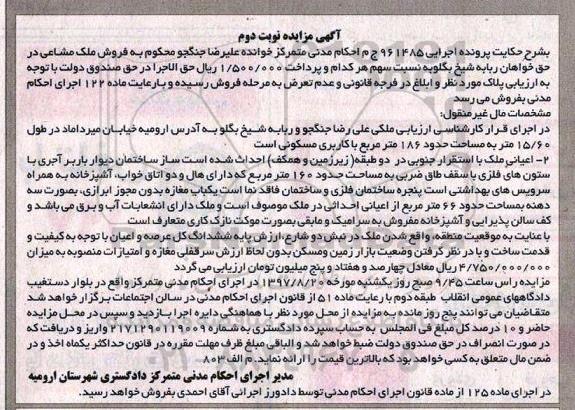 آگهی مزایده نوبت دوم
بشرح حکایت پرونده اجرایی ۹۶۱۴۸۵ ج م احکام مدنی متمرکز خوانده علیرضا جنگجو محکوم به فروش ملک مشاعی در
حق خواهان ربابه شیخ بگلوبه نسبت سهم هر کدام و پرداخت ۱/۵۰۰/۰۰۰ ریال حق الاجرا در حق صندوق دولت با توجه
به ارزیابی پلاک مورد نظر و ابلاغ در فرجه قانونی و عدم تعرض به مرحله فروش رسیده و بارعایت ماده ۱۲۲ اجرای احکام
مدنی بفروش می رسد
مشخصات مال غیرمنقول:
در اجرای قرار کارشناسی ارزیابی ملکی علی رضا جنگجو و ربابه شیخ بگلو به آدرس ارومیه خیابان میرداماد در طول
۱۵/۶۰ متر به مساحت حدود ۱۸۶ متر مربع با کاربری مسکونی است
۲- اعیانی ملک با استقرار جنوبی در دو طبقه( زیرزمین و همکف) احداث شده است ساز ساختمان دیوار باربر آجری با
ستون های فلزی با سقف طاق ضربی به مساحت حدود ۱۶۰ متر مربع که دارای هال و دو اتاق خواب، آشپزخانه به همراه
سرویس های بهداشتی است پنجره ساختمان فلزی و ساختمان فاقد نما است یکباب مغازه بدون مجوز ابرازی، بصورت سه
دهنه بمساحت حدود ۶۶ متر مربع از اعیانی احداثی در ملک موصوف است و ملک دارای انشعابات آب و برق می باشد و
کف سالن پذیرایی و آشپزخانه مفروش به سرامیک و مابقی بصورت موکت نازک کاری متعارف است
با عنایت به موقعیت منطقه، واقع شدن ملک در نبش دو شارع، ارزش پایه ششدانگ کل عرصه و اعیان با توجه به کیفیت و
قدمت ساخت و با در نظر گرفتن وضعیت بازار زمین ومسکن بدون لحاظ ارزش سرقفلی مغازه و امتیازات منصوبه به میزان
۴/۷۵۰/۰۰۰/۰۰۰ ریال معادل چهارصد و هفتاد و پنج میلیون تومان ارزیابی می گردد
مزایده راس ساعت ۹/۴۵ صبح روز یکشنبه مورخه ۱۳۹۷/۸/۲۰ در اجرای احکام مدنی متمرکز واقع در بلوار دستغیب
دادگاههای عمومی انقلاب طبقه دوم با رعایت ماده ۵۱ از قانون اجرای احکام مدنی در سالن اجتماعات برگزار خواهد شد
متقاضیان می توانند پنج روز مانده به مزایده از محل مورد نظر با هماهنگی دایره اجرا بازدید و سپس در محل مزایده
حاضر و ۱۰ درصد کل مبلغ فی المجلس به حساب سپرده دادگستری به شماره ۲۱۷۱۲۹۰۱۱۹۰۰۹ واریز و دریافت که
در صورت انصراف در حق صندوق دولت ضبط خواهد شد و الباقی مبلغ ظرف مهلت مقرره در قانون حداکثر یکماه اخذ و در
ضمن مال متعلق به کسی خواهد بود که بالاترین قیمت را ارائه نماید. م الف ۸۰۳
مدیر اجرای احکام مدنی متمرکز دادگستری شهرستان ارومیه
در اجرای ماده ۱۲۵ از ماده قانون اجرای احکام مدنی توسط دادورز اجرائی آقای احمدی بفروش خواهد رسید.